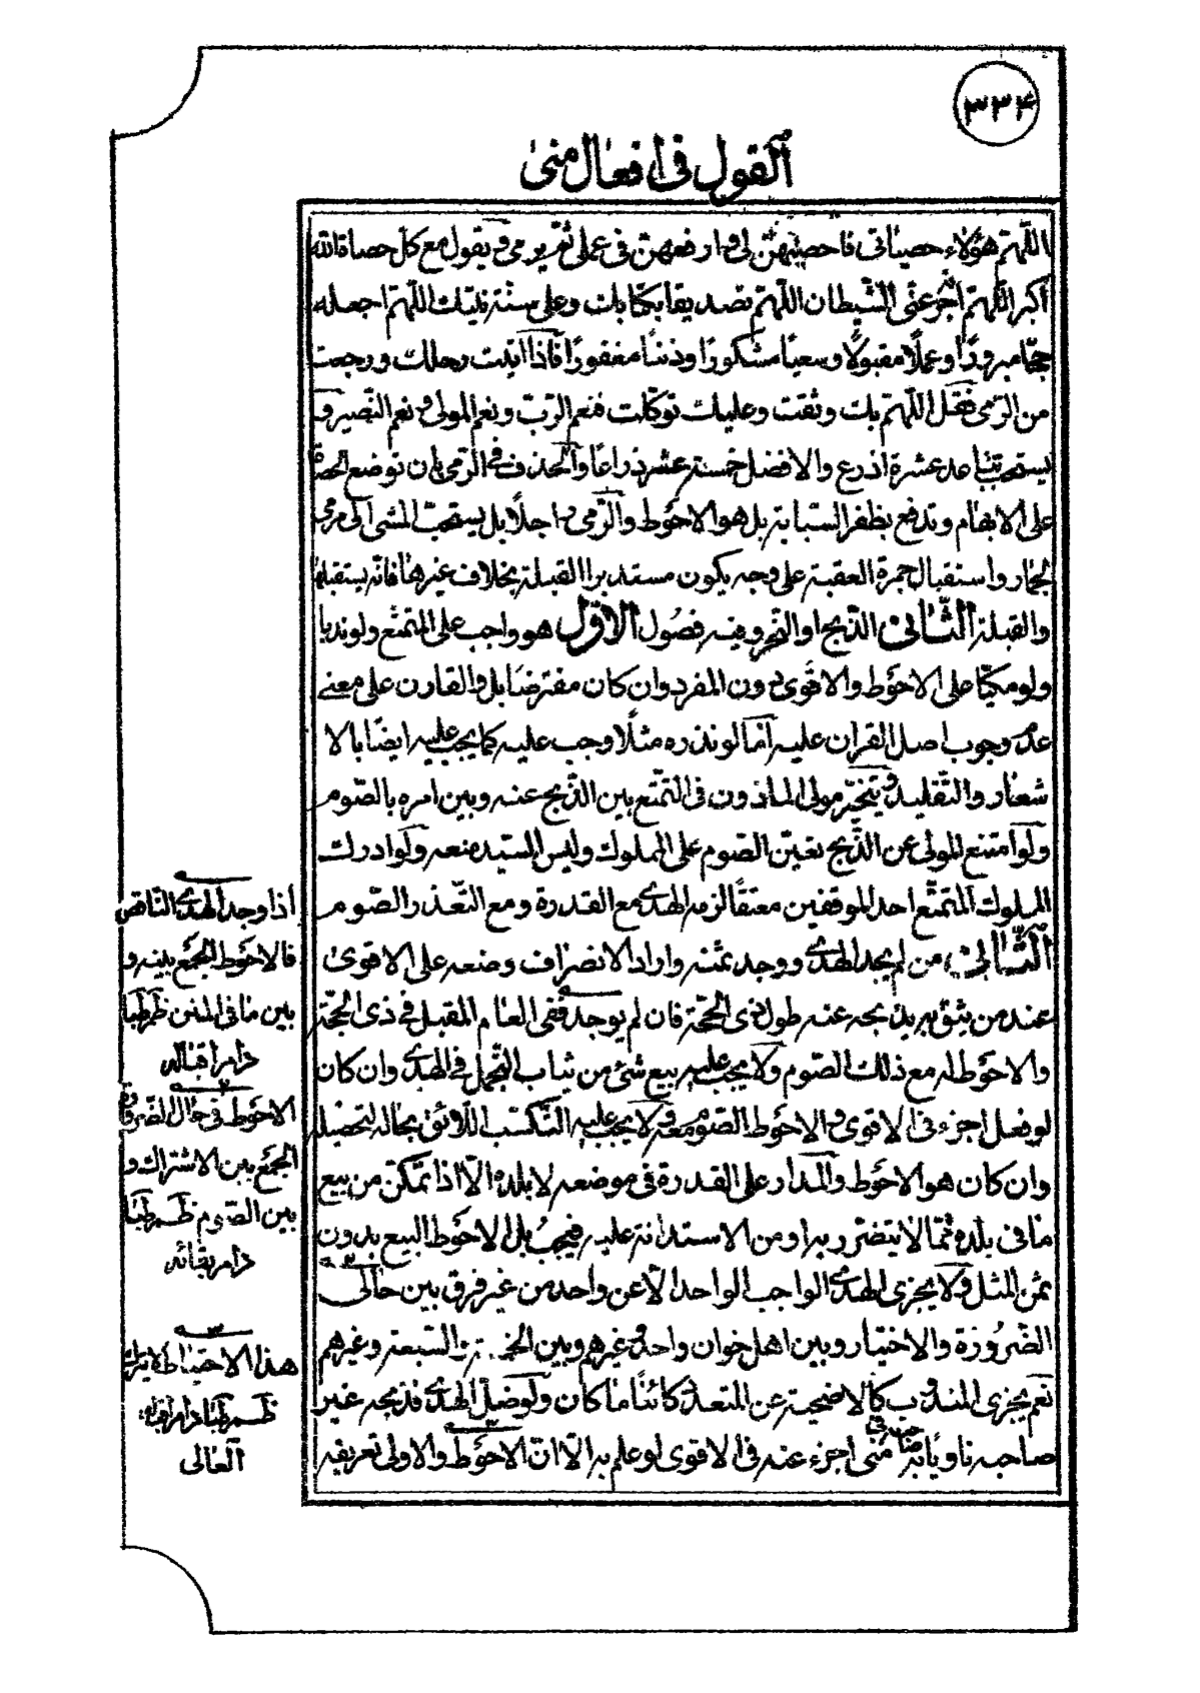 ۳۳۴
القول فی افعال منی
اللهم هؤلاء حصیاتی فاحصیهن لی و ارفعهن فی عملی ثم یرمی و یقول مع کل حصاة الله
اکبر اللهم ادحر عنی الشیطان اللهم تصدیقا بکتابك وعلی سنة نبیك اللهم اجعله
حجا مبرورا وعملا مقبولا وسعیا مشکورا وذنبا مغفورا فاذا اتیت رحلك و رجعت
من الرمی فقل اللهم بك وثقت وعلیك توکلت فنعم الرب ونعم المولی و نعم النصیر و
یستحب تباعد عشرة اذرع والافضل خمسة عشر ذراعا والخذف فی الرمی بان توضع الحصاة
علی الابهام وتدفع بظفر السبابة بل هو الاحوط والرمی راجلا بل یستحب المشی الی مرمی
الجمار واستقبال جمرة العقبة علی وجه یکون مستدبرا القبلة بخلاف غیرها فانه یستقبلها
والقبلة الثانی الذبح او النحر وفیه فصول الاول هو واجب علی المتمتع ولو ندبا
ولو مکیا علی الاحوط والاقوی دون المفرد وان کان مفترضا بل والقارن علی معنی
عدم وجوب اصل القران علیه اما لو نذره مثلا وجب علیه کما یجب علیه ایضا بالا
شعار والتقلید و یتخیر مولی الماذون فی التمتع بین الذبح عنه وبین امره بالصوم
ولو امتنع المولی عن الذبح تعین الصوم علی المملوك ولیس للسید منعه ولو ادرك
المملوك المتمتع احد الموقفین معتقا لزمه الهدی مع القدرة ومع التعذر الصوم
الثانی من لم یجد الهدی ووجد ثمنه واراد الانصراف وضعه علی الاقوی
عند من یثق به یذبحه عنه طول ذی الحجة فان لم یوجد ففی العام المقبل فی ذی الحجة
والاحوط له مع ذلك الصوم ولا یجب علیه بیع شئ من ثیاب التجمل فی الهدی وان کان
لو فعل اجزء فی الاقوی والاحوط الصوم معه و لا یجب علیه التکسب اللائق بحاله لتحصیله
وان کان هو الاحوط والمدار علی القدرة فی موضعه لا بلده الا اذا تمکن من بیع
ما فی بلده مما لا یتضرر به او من الاستدانة علیه فیجب بل الاحوط البیع بدون
ثمن المثل و لا یجزی الهدی الواجب الواحد الا عن واحد من غیر فرق بین حالی
الضرورة والاختیار وبین اهل خوان واحد و غیرهم وبین الخمسة والسبعة وغیرهم
نعم یجزی المندوب کالاضحیة عن المتعدد کائنا ما کان ولو ضل الهدی فذبحه غیر
صاحبه ناویا به صاحبه فی منی اجزء عنه فی الاقوی لو علم به الا ان الاحوط والاولی تعریفه
اذا وجد الهدی الناقص
فالاحوط الجمع بینه و
بین ما فی المتن ظم طبا
دام اقباله
۲
الاحوط فی حال الضرورة
الجمع بین الاشتراك و
بین الصوم ظم طبا
دام بقائه
۳
هذا الاحتیاط لا یترك
ظم طبا دام اقباله
العالی